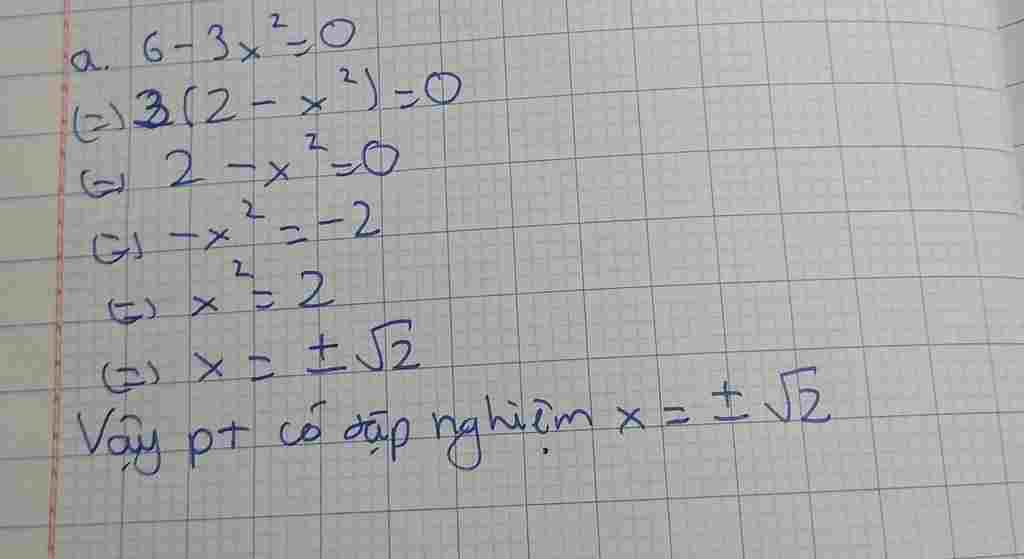 a. 6 - 3x² = 0
(=) 3(2 - x²) = 0
(=) 2 - x² = 0
(=) -x² = -2
(=) x² = 2
(=) x = ± √2
Vậy pt có tập nghiệm x = ± √2